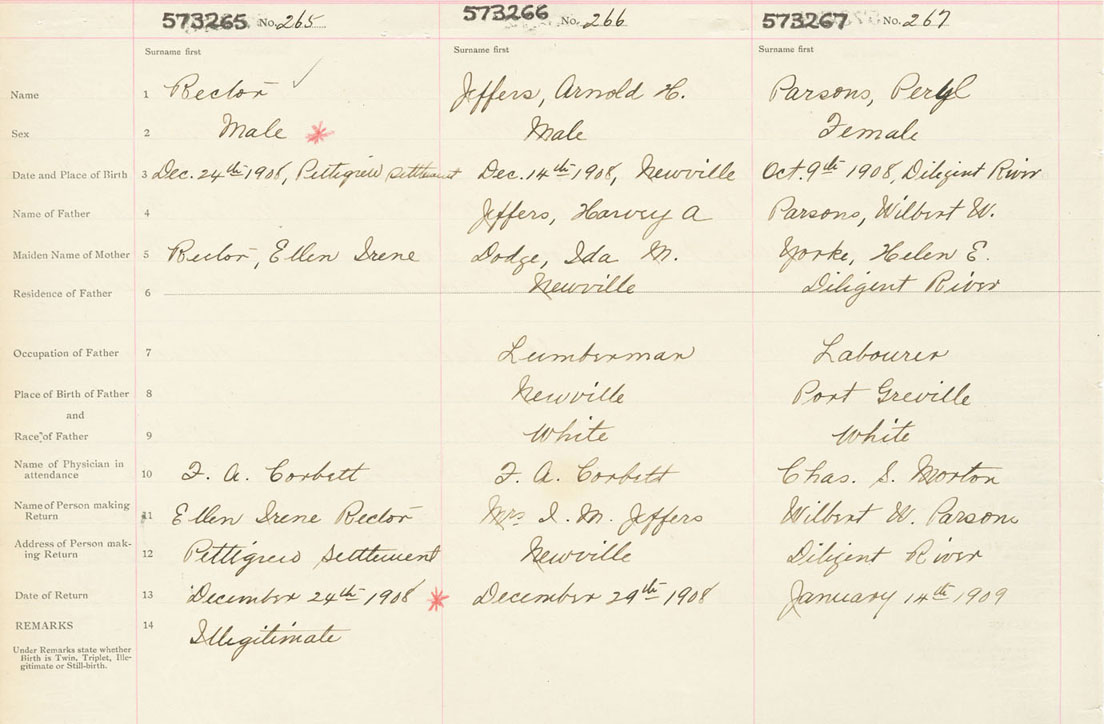 573265 No. 265 573266 No. 266 573267 No. 267
Surname first Surname first Surname first
Name 1 Rector Jeffers, Arnold H. Parsons, Peryl
Sex 2 Male Male Female
Date and Place of Birth 3 Dec. 24th 1908, Pettigrew Settlement Dec. 14th 1908, Newville Oct. 9th 1908, Diligent River
Name of Father 4 Jeffers, Harvey A Parsons, Wilbert W.
Maiden Name of Mother 5 Rector, Ellen Irene Dodge, Ida M. Yorke, Helen E.
Residence of Father 6 Newville Diligent River
Occupation of Father 7 Lumberman Labourer
Place of Birth of Father 8 Newville Port Greville
and
Race of Father 9 White White
Name of Physician in
attendance 10 F. A. Corbett F. A. Corbett Chas. S. Morton
Name of Person making
Return 11 Ellen Irene Rector Mrs I. M. Jeffers Wilbert W. Parsons
Address of Person mak-
ing Return 12 Pettigrew Settlement Newville Diligent River
Date of Return 13 December 24th 1908 December 29th 1908 January 14th 1909
REMARKS 14 Illegitimate
Under Remarks state whether
Birth is Twin, Triplet, Ille-
gitimate or Still-birth.